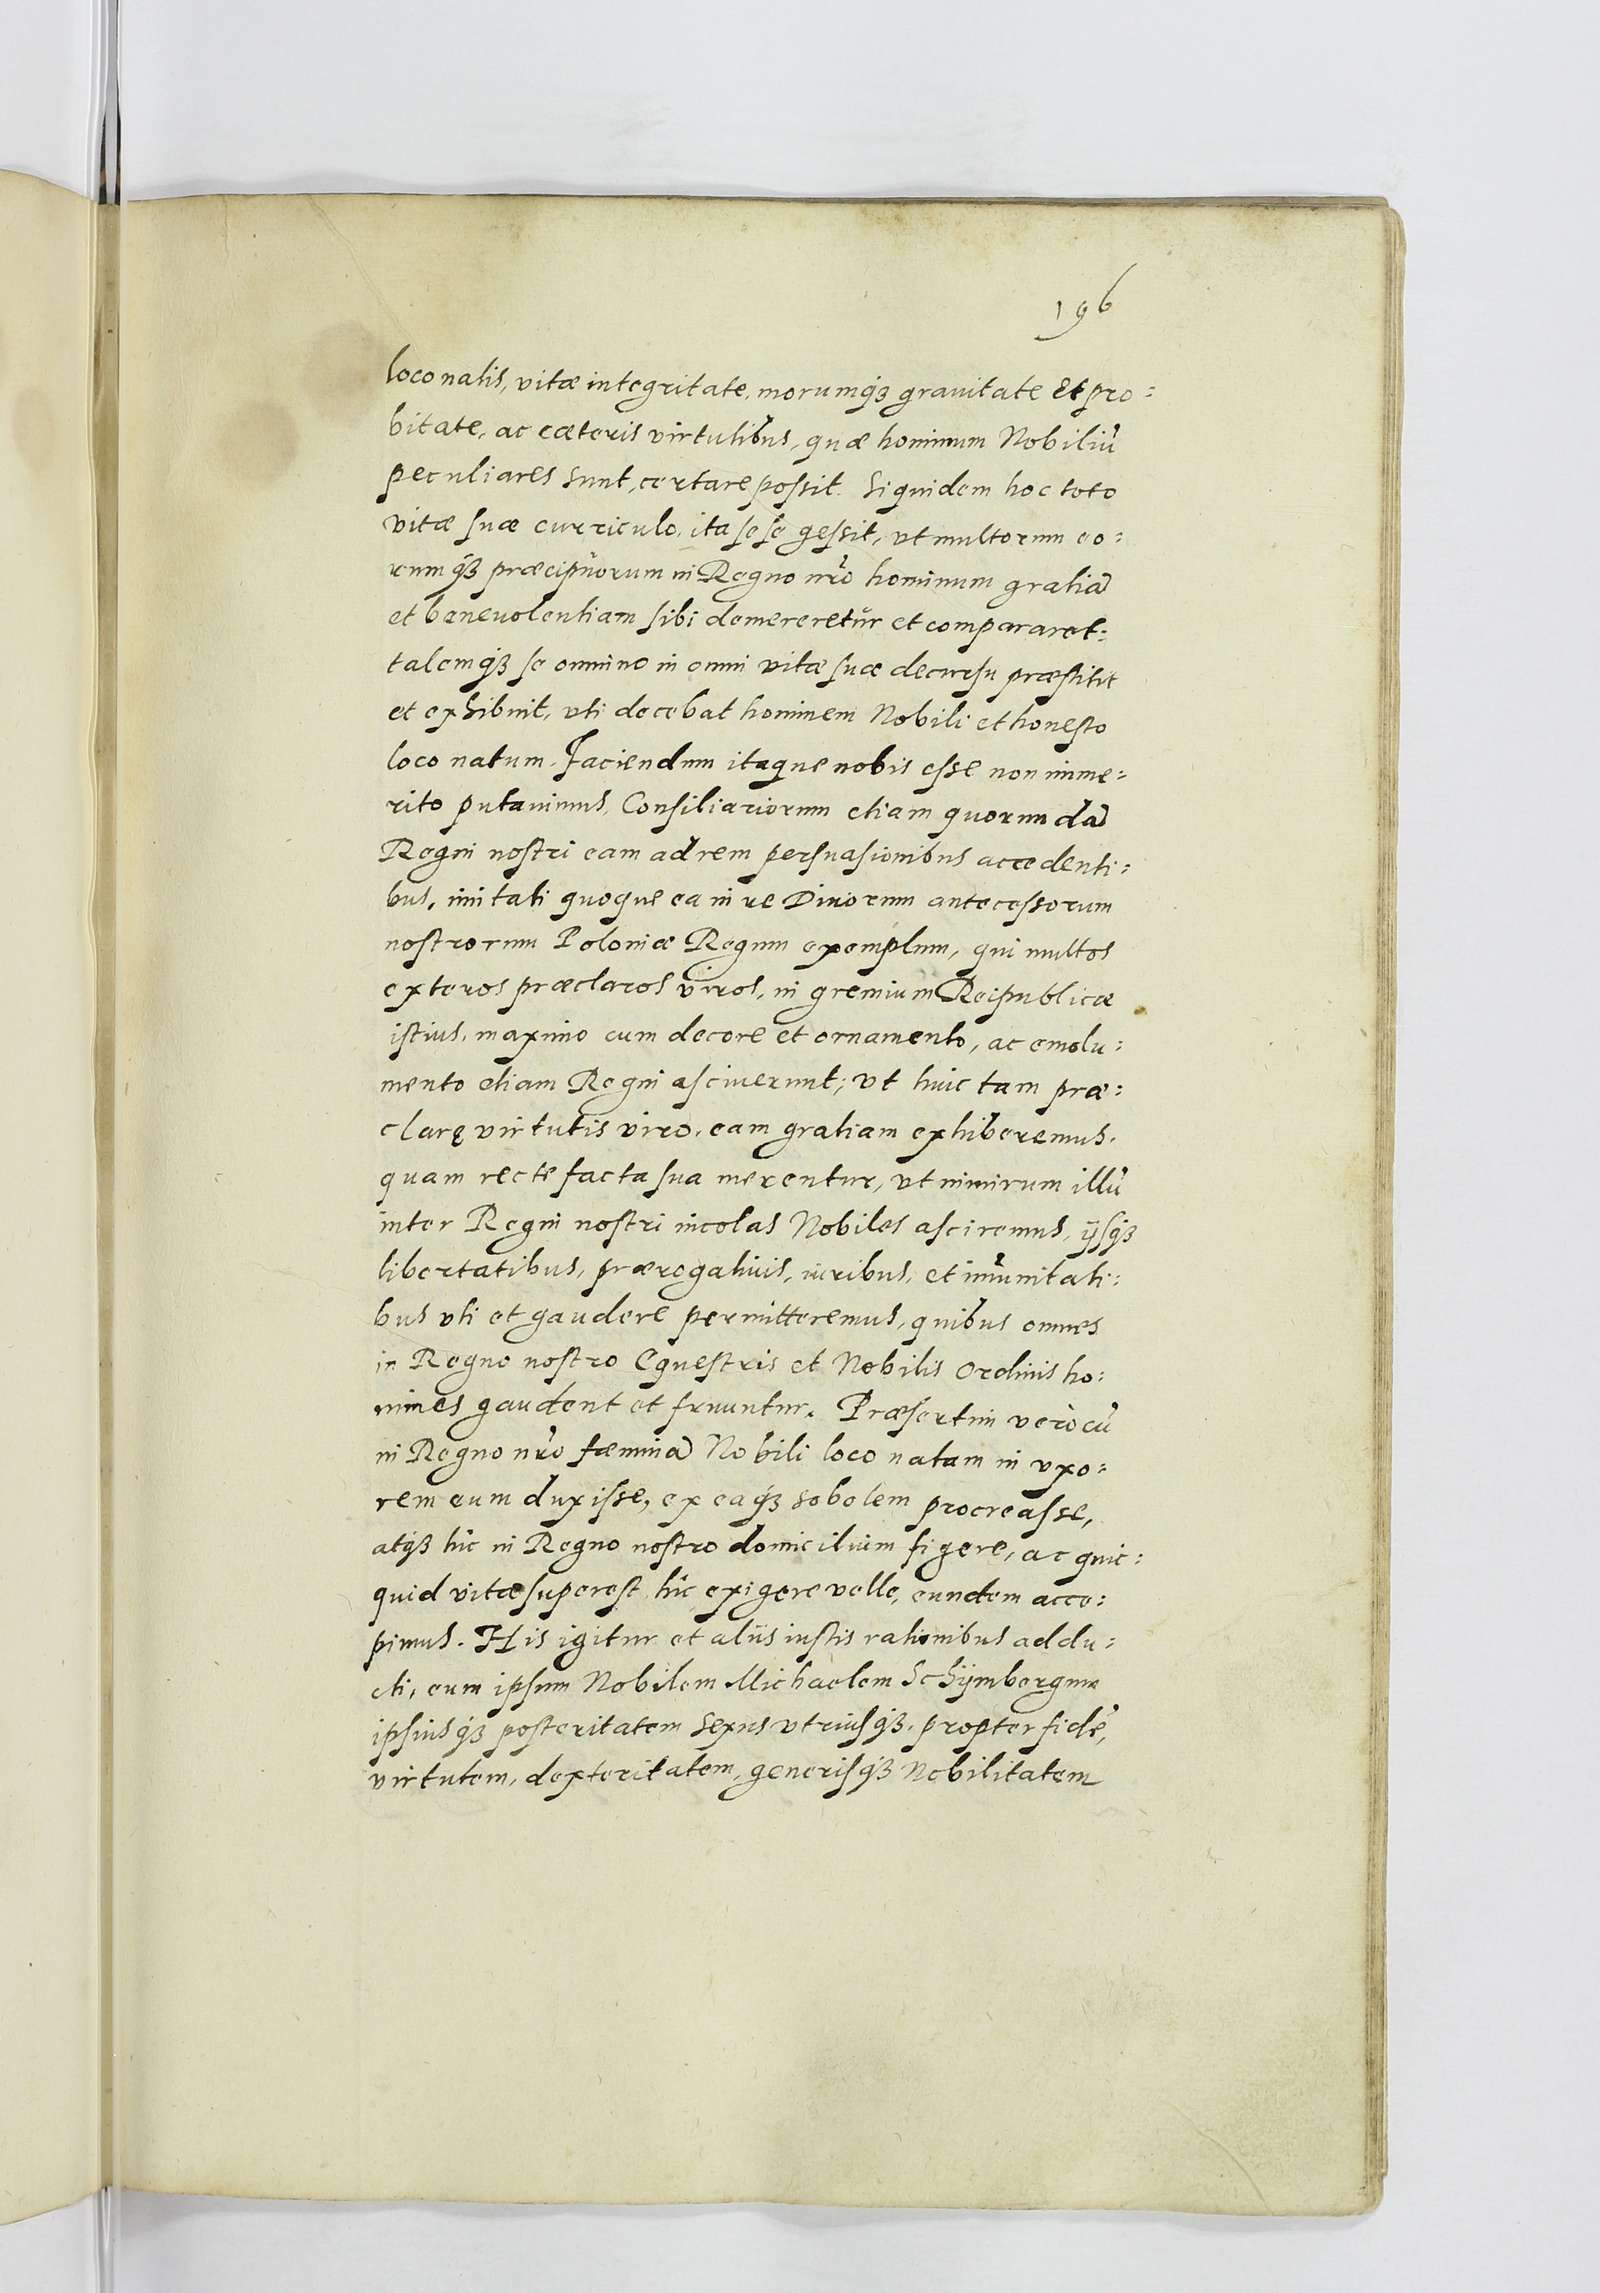 196
loco natis, vitæ integritate, morumq́ꝫ grauitate et pro:
bitate, ac cæteris virtutibus, quæ hominum Nobiliũ
peculiares sunt, certare possit. Siquidem hoc toto
vitæ suæ curriculo, ita sese gessit, vt multorum eo:
rumq́ꝫ præcipuorum in Regno nr̃o hominum gratiã
et beneuolentiam sibi demereretur et compararet:
talemq́ꝫ se omnino in omni vitæ suæ decursu præstitit
et exhibuit, vti decebat hominem Nobili et honesto
loco natum. Faciendum itaque nobis esse non imme:
rito putauimus, Consiliariorum etiam quorundã
Regni nostri eam ad rem persuasionibus accedenti:
bus, imitati quoque ea in re Diuorum antecessorum
nostrorum Poloniæ Regum exemplum, qui multos
exteros præclaros viros, in gremium Reipublicæ
istius, maximo cum decore et ornamento, ac emolu:
mento etiam Regni asciuerunt; vt huic tam præ:
clarę virtutis viro, eam gratiam exhiberemus,
quam recte facta sua merentur, vt nimirum illũ
inter Regni nostri incolas Nobiles asciremus, ijsq́ꝫ
libertatibus, prærogatiuis, iuribus, et im̃unitati:
bus vti et gaudere permitteremus, quibus omnes
in Regno nostro Equestris et Nobilis Ordinis ho:
mines gaudent et fruuntur. Præsertim verò cũ
in Regno nr̃o fæminã Nobili loco natam in vxo:
rem eum duxisse, ex eaq́ꝫ sobolem procreasse,
atq́ꝫ hîc in Regno nostro domicilium figere, ac quic:
quid vitæ superest hîc exigere velle, eundem acce:
pimus. His igitur et aliis iustis rationibus addu:
cti, eum ipsum Nobilem Michaelem Schijmbergum
ipsiusq́ꝫ posteritatem sexus vtriusq́ꝫ, propter fidẽ,
virtutem, dexteritatem, generisq́ꝫ Nobilitatem